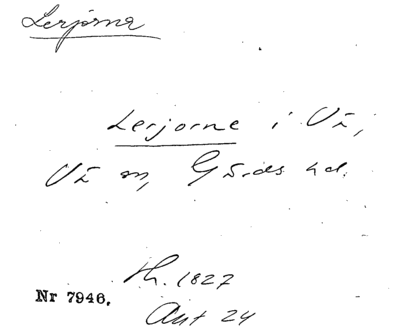 Lerjorna
Lerjorne i Vä,
Vä sn, Gärds hd.
Th. 1827
Nr 7946.
Ant 24